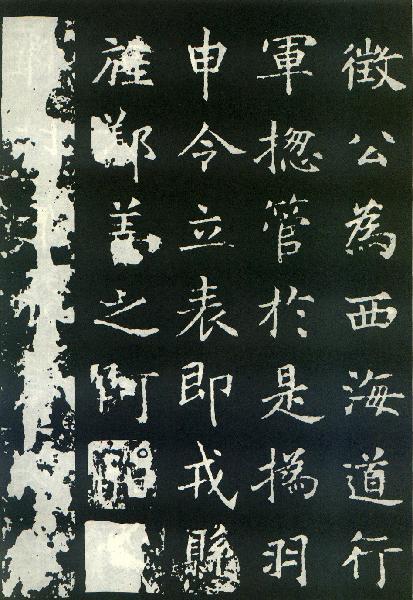 徵公為西海道行
軍揔管於是撝羽
申令立表即戎縣
旌鄯善之阿